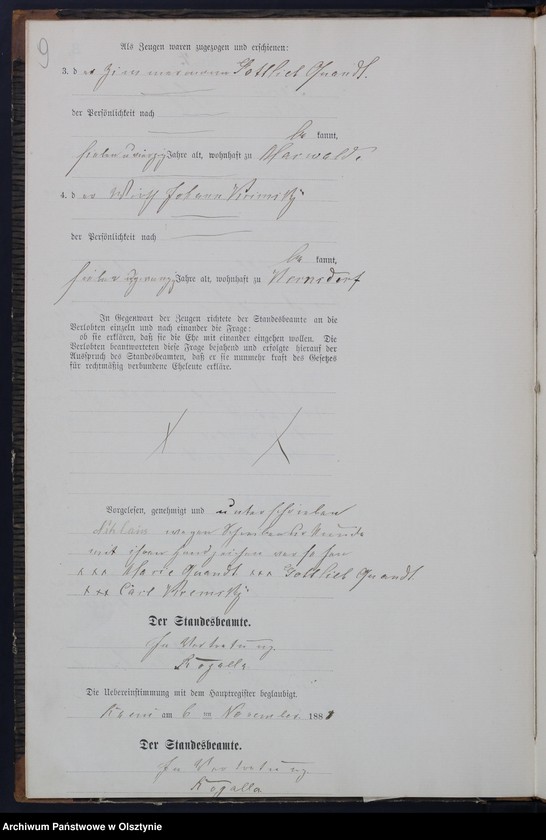 9
Als Zeugen waren zugezogen und erschienen:
3. der Zimmermann Gottlieb Quandt.
der Persönlichkeit nach
be kannt,
Jahre alt, wohnhaft zu Marwalde.
4. der Wirth Johann
der Persönlichkeit nach
be kannt,
Jahre alt, wohnhaft zu
In Gegenwart der Zeugen richtete der Standesbeamte an die
Verlobten einzeln und nach einander die Frage:
ob sie erklären, daß sie die Ehe mit einander eingehen wollen. Die
Verlobten beantworteten diese Frage bejahend und erfolgte hierauf der
Ausspruch des Standesbeamten, daß er sie nunmehr kraft des Gesetzes
für rechtmäßig verbundene Eheleute erkläre.
Vorgelesen, genehmigt und unterschrieben
wegen Schreibensunkunde
mit ihren Handzeichen versehen
xxx Marie Quandt xxx Gottlieb Quandt
xxx Carl
Der Standesbeamte.
In Vertretung
Rogalla
Die Uebereinstimmung mit dem Hauptregister beglaubigt.
am 6 ten November 1881
Der Standesbeamte.
In Vertretung
Rogalla
Archiwum Państwowe w Olsztynie